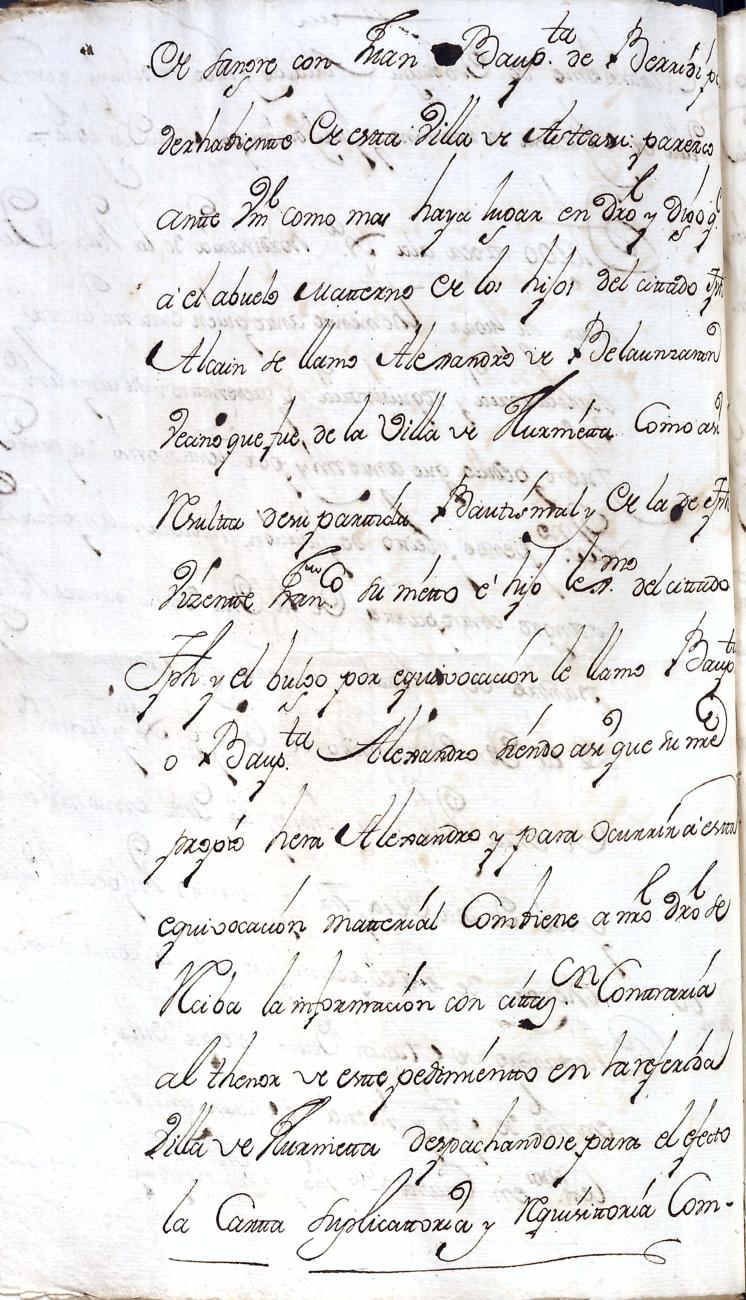 de sangre con Juan Baup.ta de Berridi po
derhabiente de estta Villa de Astteasu: parezco
antte Vm como mas haya lugar en dro y digo q.e
á el abuelo Matterno de los hijos del cittado Jph
Alcain se llamo Alexandro de Belaunzaran
vecino que fue de la Villa de Hurnietta Como asi
Resultta de su parttida Bautismal y de la de Jph
Vizentte Fran.co su nietto é hijo lex.mo del cittado
Jph y el bulgo por equivocación le llamo Baup.ta
o Baup.ta Alexandro siendo asi que su nre
propio hera Alexandro y para Ocurrir á estta
equivocacion matterial Combiene a mro dro se
Reciba la información con citta.on Conttraria
al thenor de estte pedimientto en la referida
Villa de Hurnietta despachandose para el efecto
la Cartta Suplicattoria y Requisittoria Com-